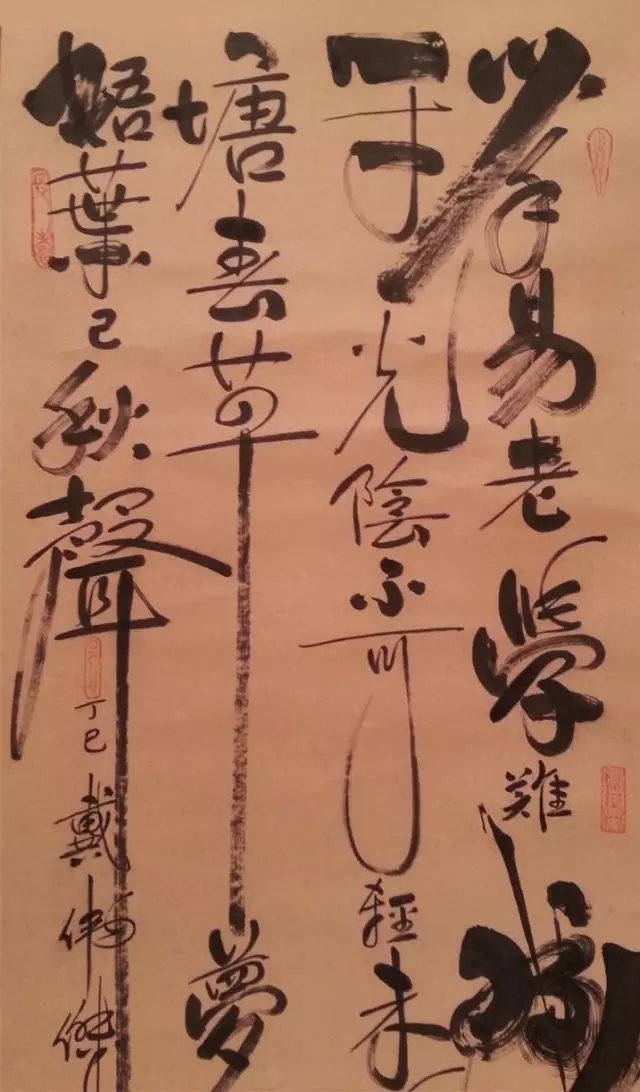 少年易老學難成
一寸光陰不可輕未
塘春草夢
梧葉已秋聲
丁巳 戴偉傑